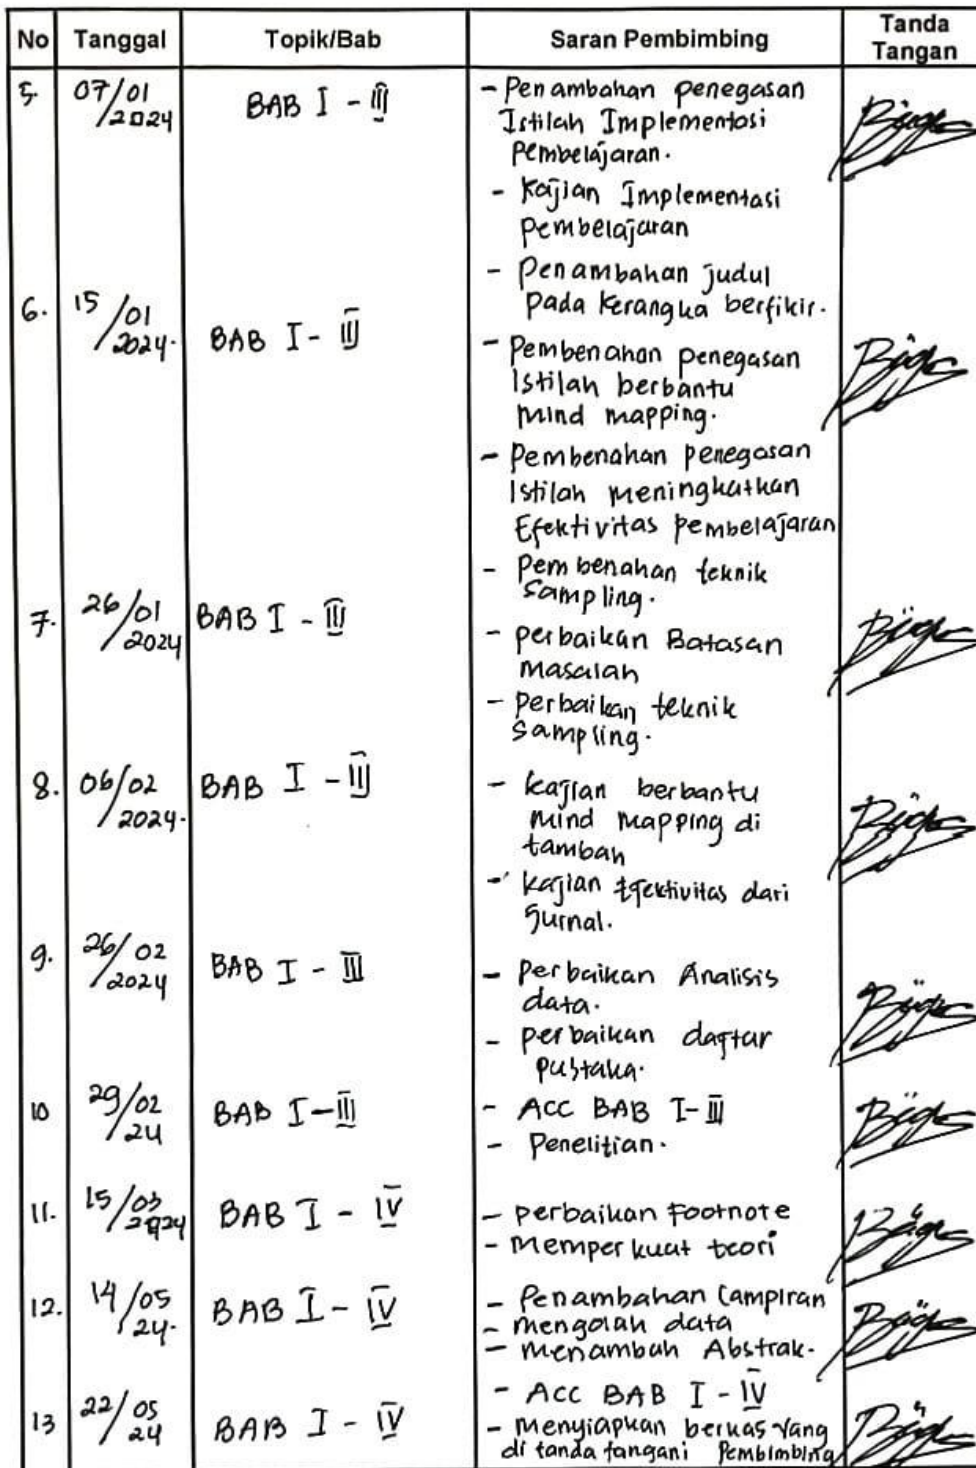 No Tanggal Topik/Bab Saran Pembimbing Tanda Tangan
5. 07/01/2024 BAB I - III - Penambahan penegasan
Istilah Implementasi
Pembelajaran.
- Kajian Implementasi
Pembelajaran
- Penambahan judul
pada kerangka berfikir.
6. 15/01/2024. BAB I - III
- Pembenahan penegasan
Istilah berbantu
mind mapping.
- Pembenahan penegasan
Istilah meningkatkan
Efektivitas pembelajaran
- Pembenahan teknik
Sampling.
7. 26/01/2024 BAB I - III
- perbaikan Batasan
masalah
- perbaikan teknik
sampling.
8. 06/02/2024. BAB I - III - kajian berbantu
mind mapping di
tambah
- kajian Efektivitas dari
Jurnal.
9. 26/02/2024 BAB I - III - perbaikan Analisis
data.
- perbaikan daftar
pustaka.
10 29/02/24 BAB I - III - ACC BAB I - III
- Penelitian.
11. 15/03/2024 BAB I - IV - perbaikan Footnote
- memperkuat teori
12. 14/05/24. BAB I - IV - Penambahan Lampiran
- mengolah data
- menambah Abstrak.
13 22/05/24 BAB I - IV - ACC BAB I - IV
- menyiapkan berkas yang
di tanda tangani Pembimbing